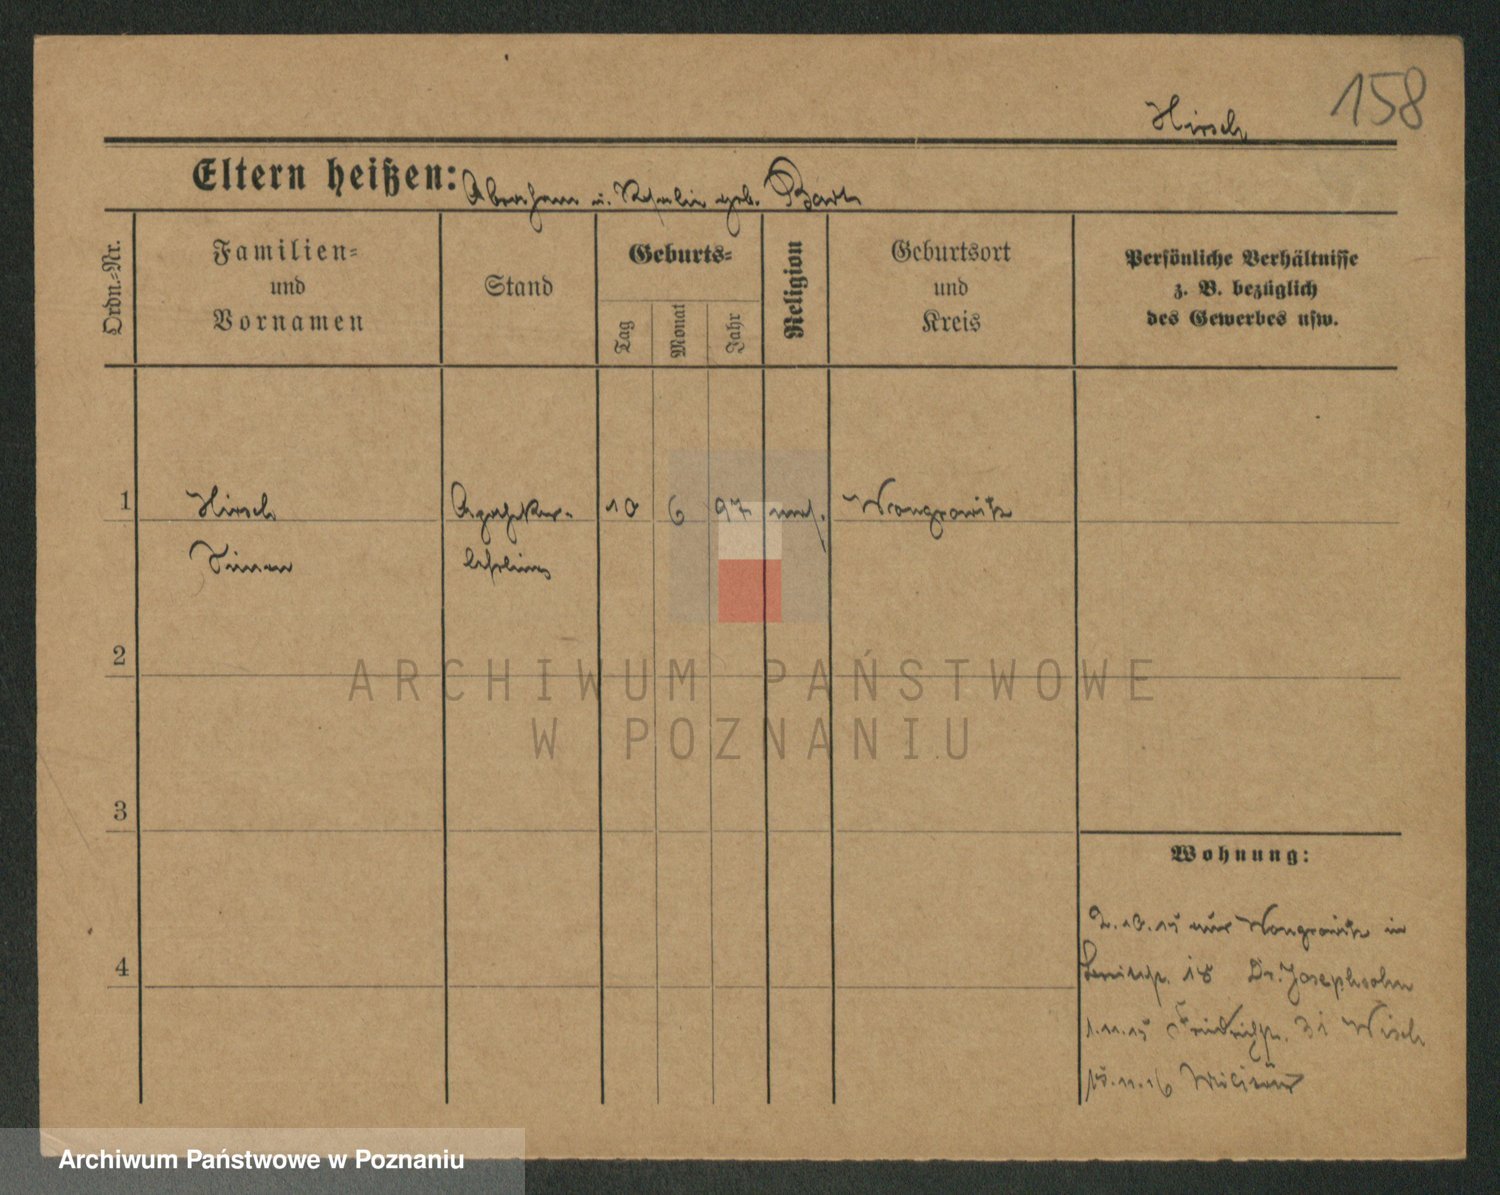 158
Hirsch
Eltern heißen: Abraham u. geb. Barth
Ordn.=Nr.
Familien=
und
Vornamen
Stand
Geburts=
Tag
Monat
Jahr
Religion
Geburtsort
und
Kreis
Persönliche Verhältnisse
z. B. bezüglich
des Gewerbes usw.
1
Hirsch
Apotheker-
10
6
97
mos.
Wongrowitz
Simon
lehrling
2
3
4
Wohnung:
2.10.15 aus Wongrowitz in
18 Dr. Josephsohn
1.11.15 Friedrichstr. 31 Wisch
15.11.16 Militär
ARCHIWUM PAŃSTWOWE
W POZNANIU
Archiwum Państwowe w Poznaniu